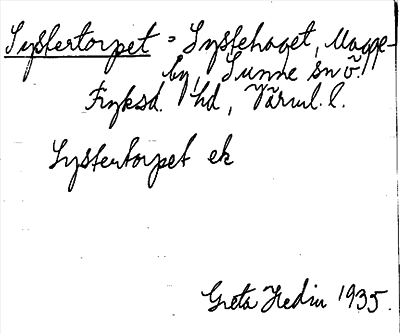 Systertorpet = Systehaget, Magge-
by, Sunne sn ö.
Fryksd. hd, Värml. l.
Systertorpet ek
Greta Hedin 1935.